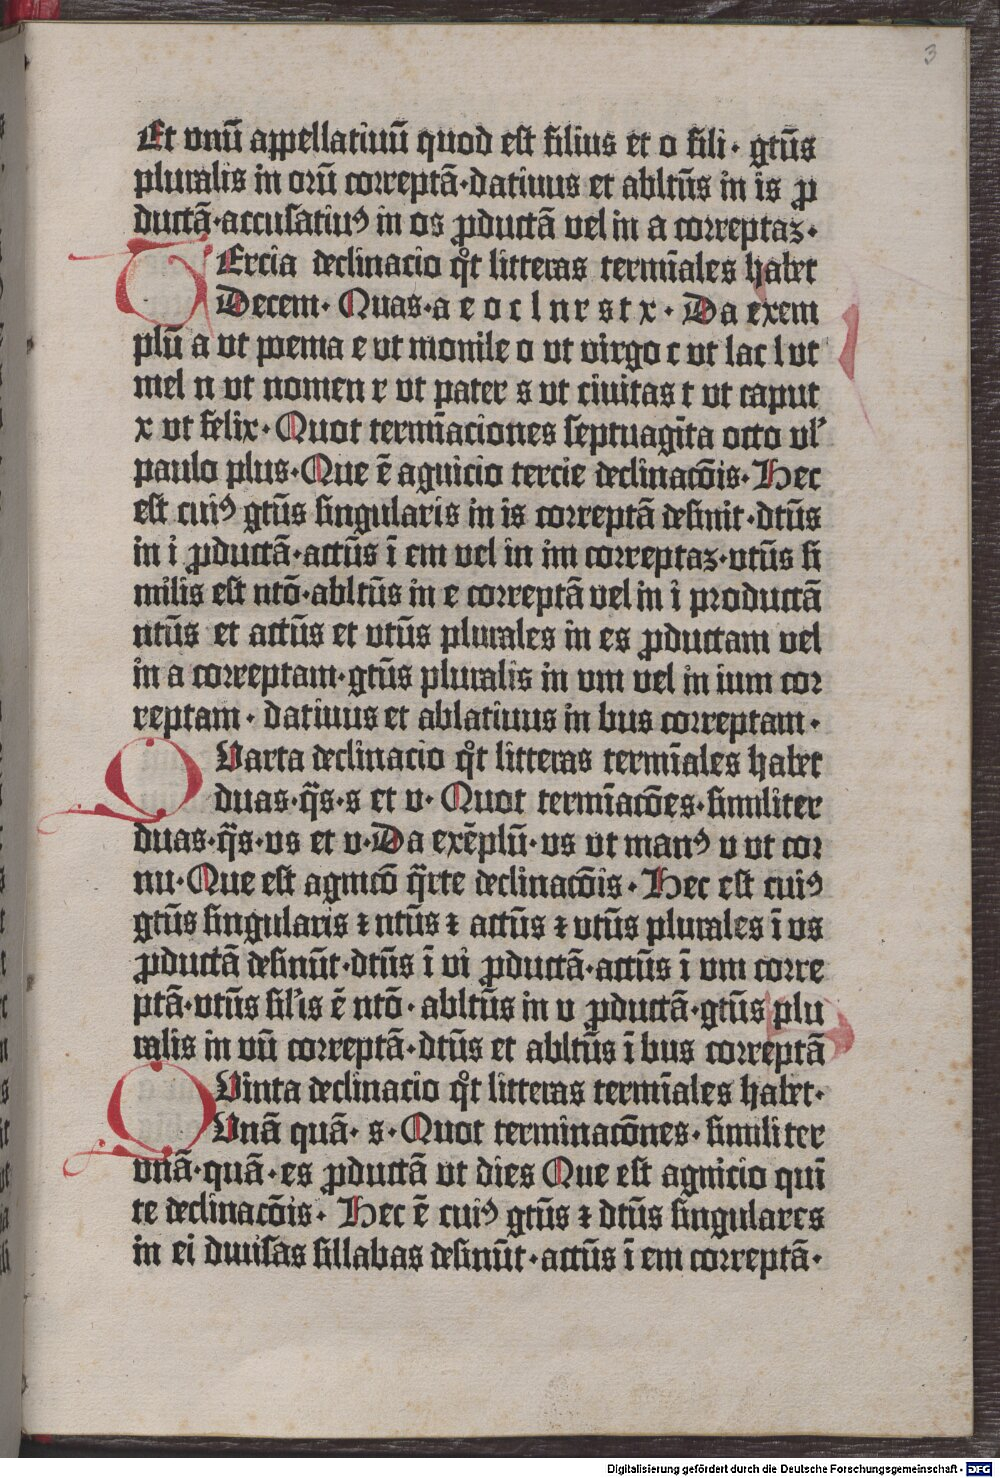 3
Et vnū appellatiuū quod est filius et o fili· gtūs
pluralis in orū correptā·datiuus et abltūs in is ꝓ
ductā·accusatiuꝰ in os ꝓductā vel in a correptaz·
TErcia declinacio qͦt litteras termīales habet
Decem· Quas·a e o c l n r s t x· Da exem
plū a vt poema e vt monile o vt virgo c vt lac l vt
mel n vt nomen r vt pater s vt ciuitas t vt caput
x vt felix· Quot termīaciones septuagīta octo vl'
paulo plus·Que ē agnicio tercie declinacōis·Hec
est cuiꝰ gtūs singularis in is correptā desinit·dtūs
in i ꝓductā·actūs ī em vel in im correptaz·vtūs si
milis est ntō·abltūs in e correptā vel in i productā
ntūs et actūs et vtūs plurales in es ꝓductam vel
in a correptam·gtūs pluralis in vm vel in ium cor
reptam· datiuus et ablatiuus in bus correptam·
QVarta declinacio qͦt litteras termīales habet
duas·q̄s·s et v· Quot termīacōes·similiter
duas·q̄s·vs et v·Da exēplū·vs vt manꝰ v vt cor
nu·Que est agnicō q̄rte declinacōis·Hec est cuiꝰ
gtūs singularis ꝛ ntūs ꝛ actūs ꝛ vtūs plurales ī vs
ꝓductā desinūt·dtūs ī vi ꝓductā·actūs ī vm corre
ptā·vtūs sil'is ē ntō·abltūs in v ꝓductā·gtūs plu
ralis in vū correptā·dtūs et abltūs ī bus correptā
QVinta declinacio qͦt litteras termīales habet·
Vnā quā· s·Quot terminacōnes·similiter
vnā·quā·es ꝓductā vt dies Que est agnicio quī
te declinacōis· Hec ē cuiꝰ gtūs ꝛ dtūs singulares
in ei diuisas sillabas desinūt·actūs ī em correptā·
Digitalisierung gefördert durch die Deutsche Forschungsgemeinschaft - DFG